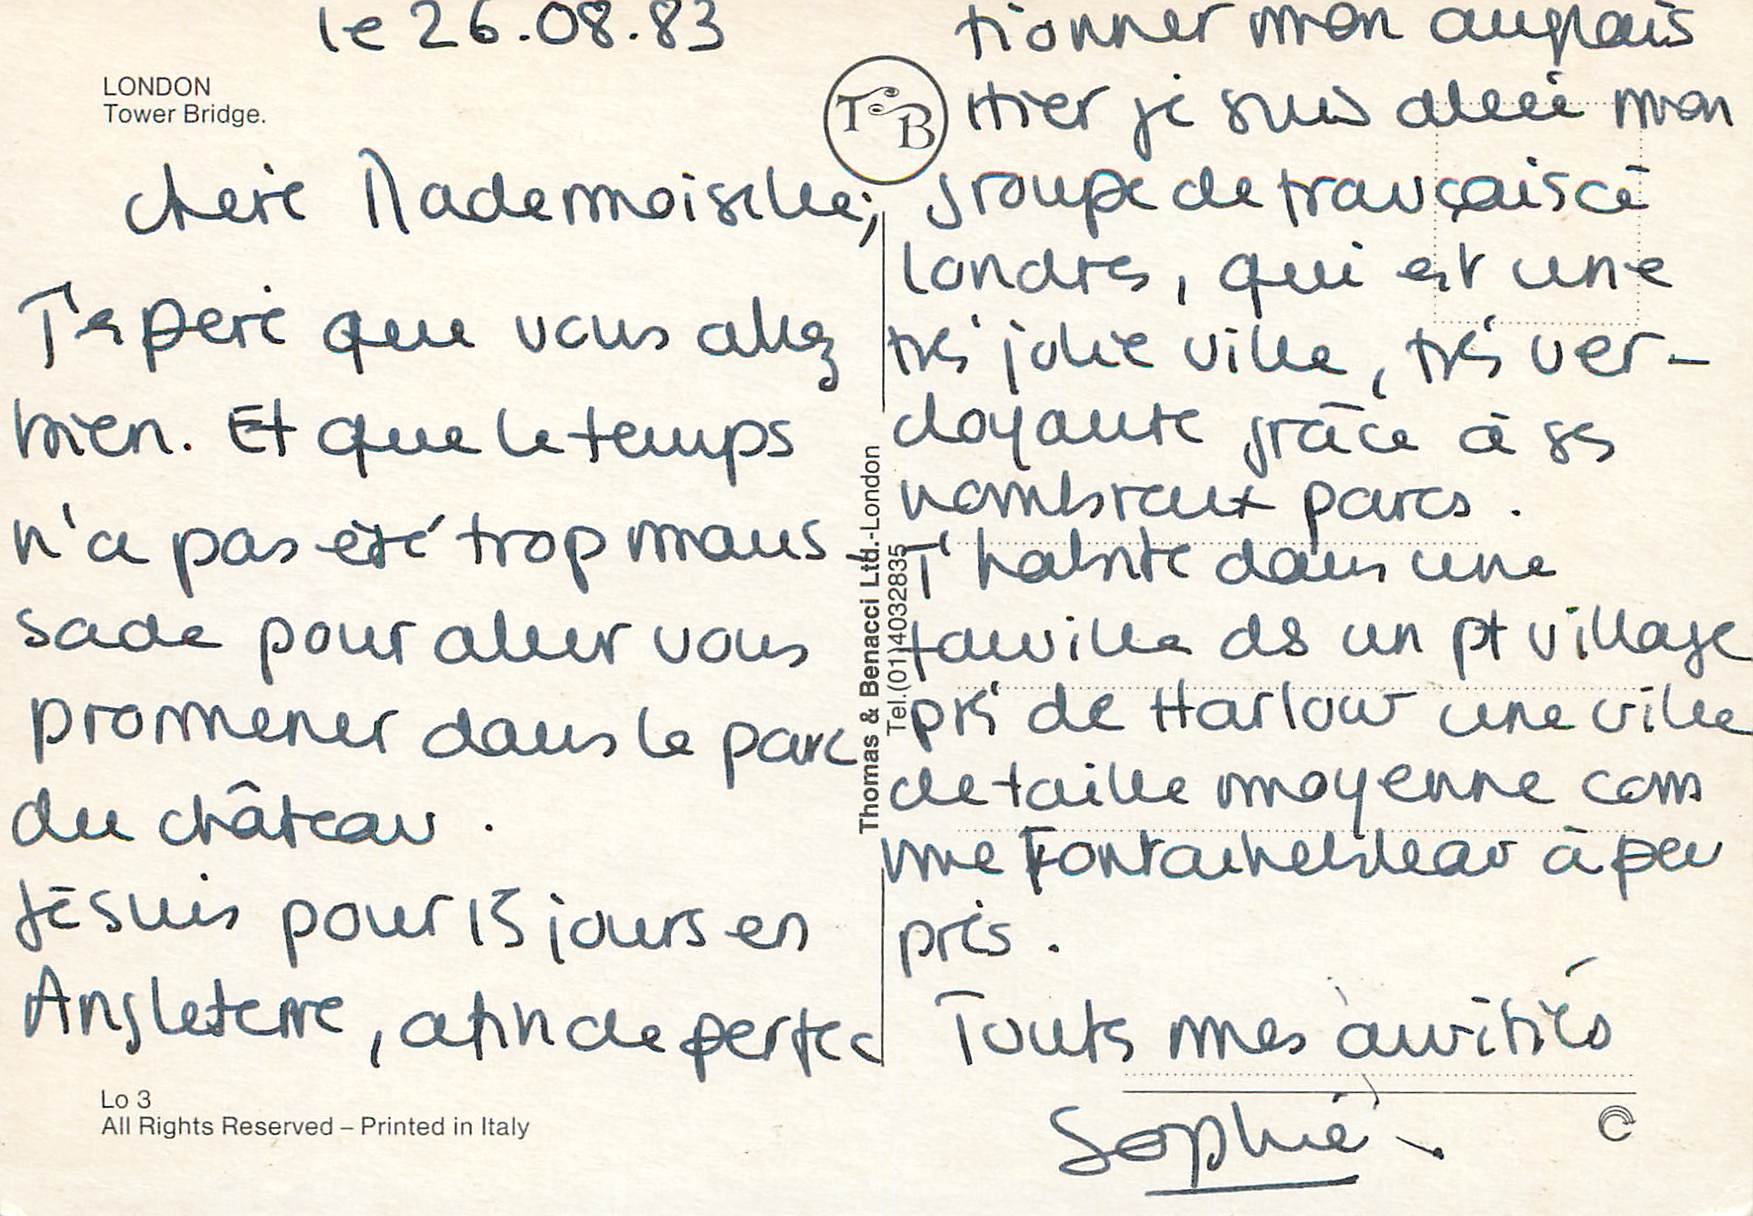 le 26.08.83
LONDON
Tower Bridge.
chère Mademoiselle,
J'espère que vous allez
bien. Et que le temps
n'a pas été trop maus-
sade pour aller vous
promener dans le parc
du château.
Je suis pour 15 jours en
Angleterre, afin de perfec
Lo 3
All Rights Reserved – Printed in Italy
T B
Thomas & Benacci Ltd.-London
Tel.(01)4032835
tionner mon anglais
Hier je suis allée mon
groupe de français à
londres, qui est une
très jolie ville, très ver-
doyante grâce à ses
nombreux parcs.
J'habite dans une
famille ds un pt village
près de Harlow une ville
de taille moyenne com
me Fontainebleau à peu
près.
Toutes mes amitiés
Sophie.